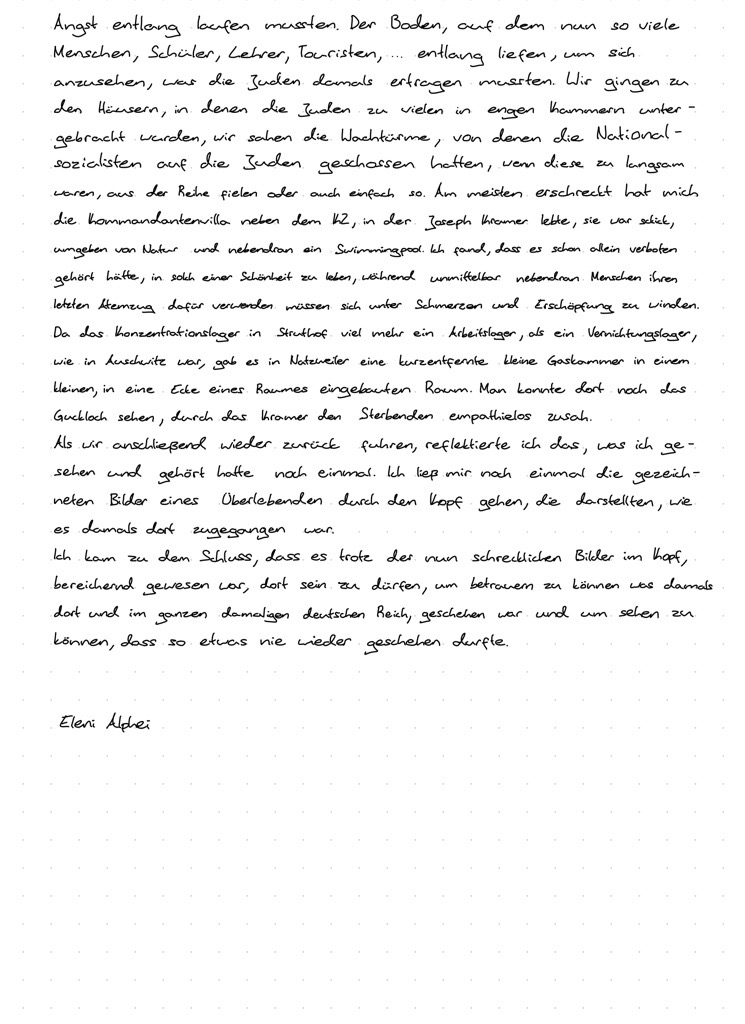 Angst entlang laufen mussten. Der Boden, auf dem nun so viele
Menschen, Schüler, Lehrer, Touristen, ... entlang liefen, um sich
anzusehen, was die Juden damals ertragen mussten. Wir gingen zu
den Häusern, in denen die Juden zu vielen in engen Kammern unter-
gebracht wurden, wir sahen die Wachtürme, von denen die National-
sozialisten auf die Juden geschossen hatten, wenn diese zu langsam
waren, aus der Reihe fielen oder auch einfach so. Am meisten erschreckt hat mich
die Kommandantenvilla neben dem KZ, in der Joseph Kramer lebte, sie war schick,
umgeben von Natur und nebendran ein Swimmingpool. Ich fand, dass es schon allein verboten
gehört hätte, in solch einer Schönheit zu leben, während unmittelbar nebendran Menschen ihren
letzten Atemzug dafür verwenden müssen sich unter Schmerzen und Erschöpfung zu winden.
Da das Konzentrationslager in Struthof viel mehr ein Arbeitslager, als ein Vernichtungslager,
wie in Auschwitz war, gab es in Natzweiler eine kurzentfernte kleine Gaskammer in einem
kleinen, in eine Ecke eines Raumes eingebauten Raum. Man konnte dort noch das
Guckloch sehen, durch das Kramer den Sterbenden empathielos zusah.
Als wir anschließend wieder zurück fuhren, reflektierte ich das, was ich ge-
sehen und gehört hatte noch einmal. Ich ließ mir noch einmal die gezeich-
neten Bilder eines Überlebenden durch den Kopf gehen, die darstellten, wie
es damals dort zugegangen war.
Ich kam zu dem Schluss, dass es trotz der nun schrecklichen Bilder im Kopf,
bereichernd gewesen war, dort sein zu dürfen, um betrauern zu können was damals
dort und im ganzen damaligen deutschen Reich, geschehen war und um sehen zu
können, dass so etwas nie wieder geschehen durfte.
Eleni Alphei